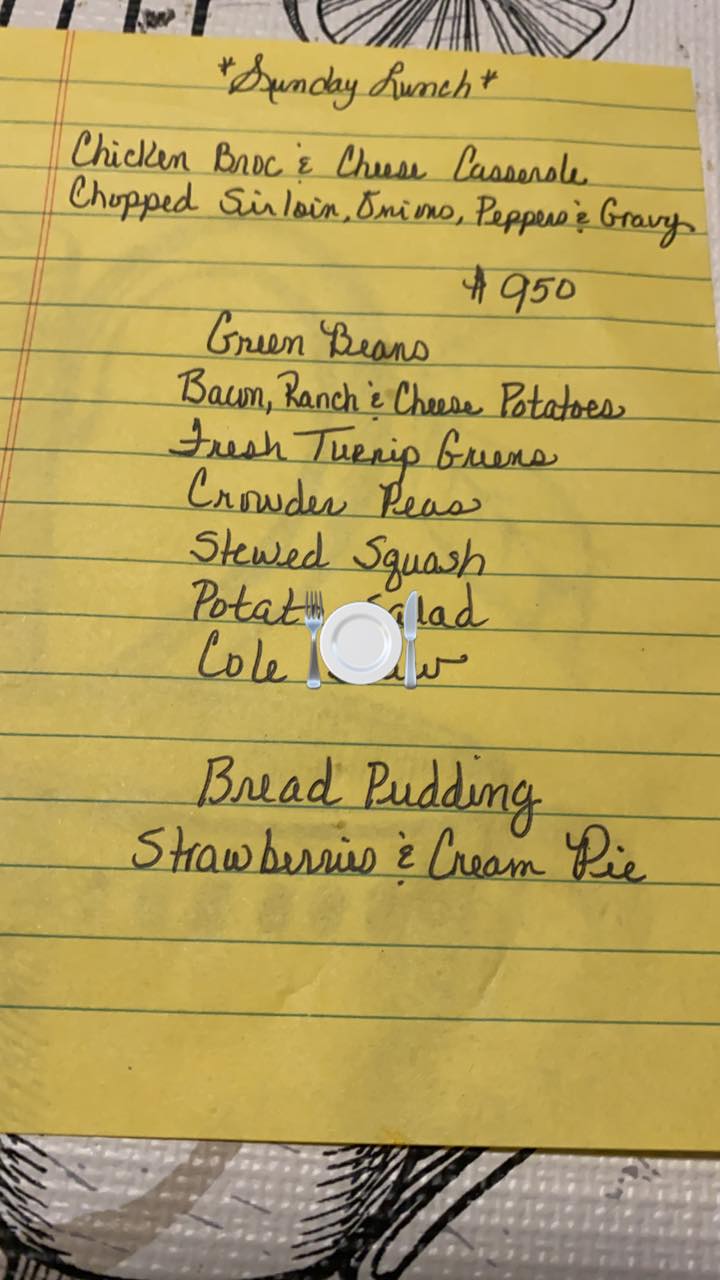 *Sunday Lunch*
Chicken Broc & Cheese Casserole
Chopped Sirloin, Onions, Peppers & Gravy
$950
Green Beans
Bacon, Ranch & Cheese Potatoes
Fresh Turnip Greens
Crowder Peas
Stewed Squash
Potato Salad
Cole Slaw
Bread Pudding
Strawberries & Cream Pie